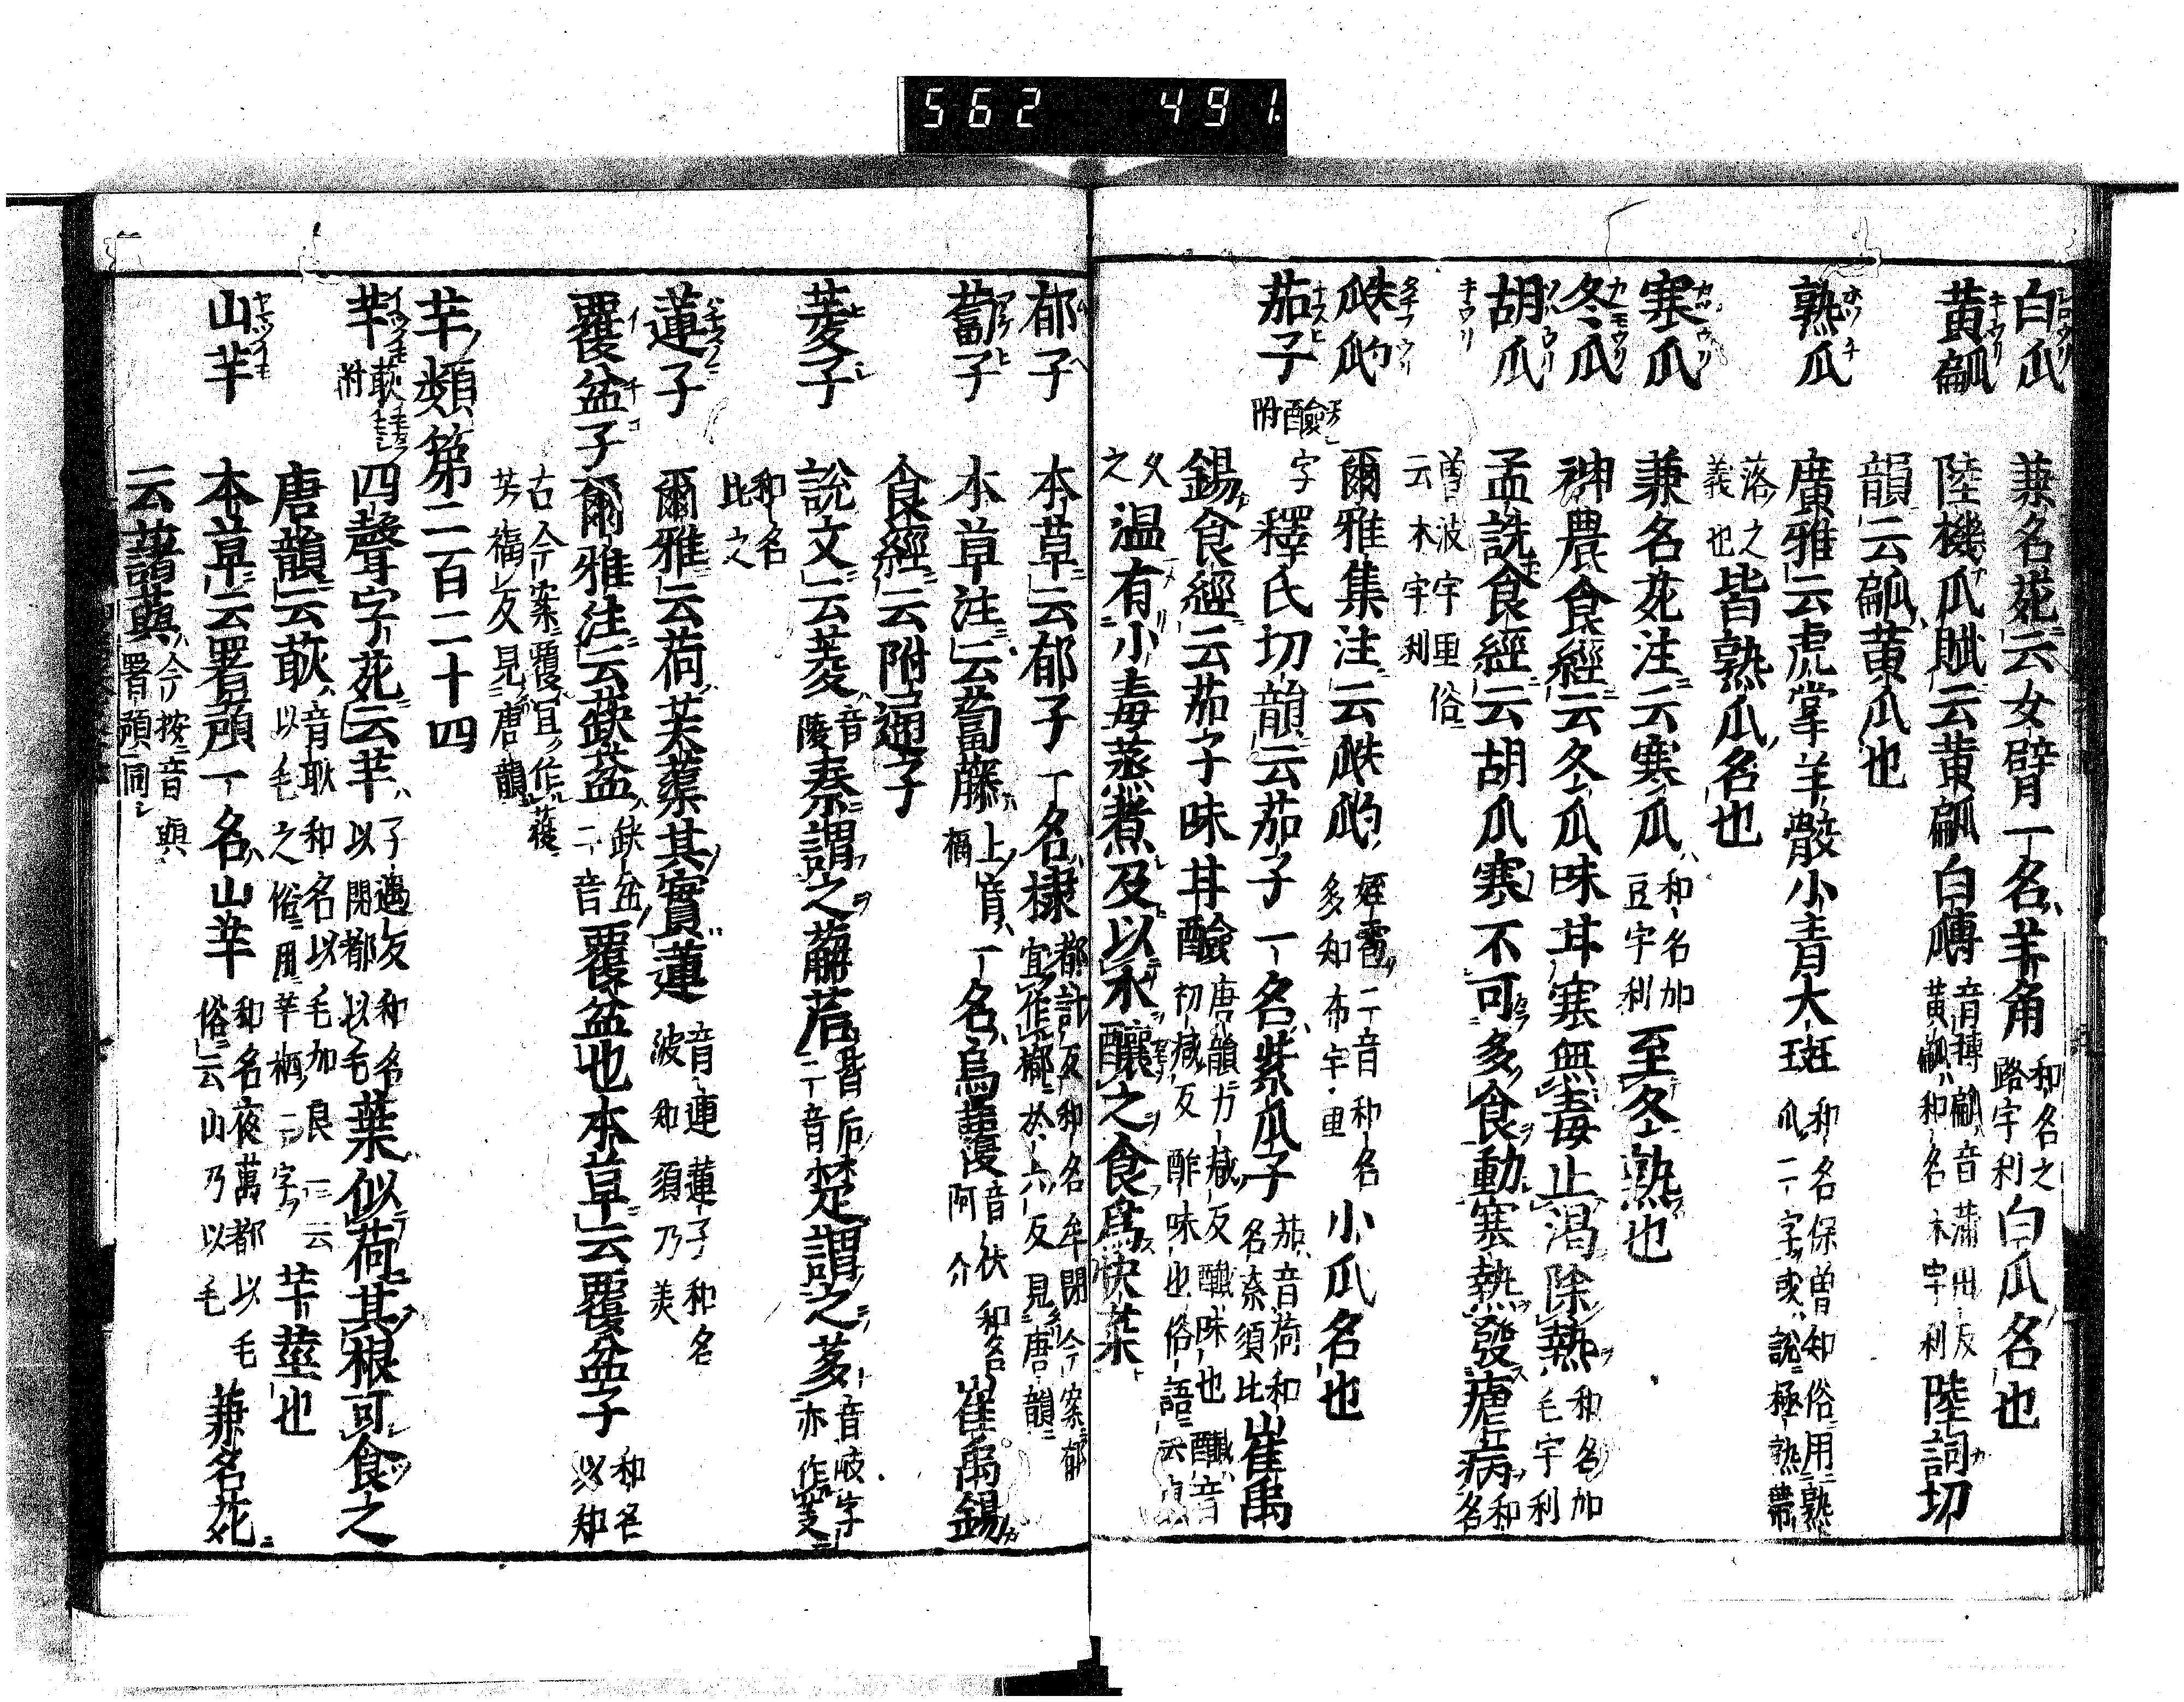 562 491.
白瓜 兼名苑云女臂一名羊角 和名之路宇利 白瓜名也
黄㼐 陸機瓜賦云黄㼐白㼷 音摶㼐音蒲田反黄㼐和名木宇利 陸詞切
韻云㼐黄瓜也
熟瓜 廣雅云虎掌羊骹小青大斑 和名保曽知俗用熟瓜二字或説極熟蔕
落之義也 皆熟瓜名也
寒瓜 兼名苑注云寒瓜 和名加豆宇利 至冬熟也
冬瓜 神農食經云冬瓜味甘寒無毒止渇除熱 和名加毛宇利
胡瓜 孟詵食經云胡瓜寒不可多食動寒熱發瘧病 和名
曽波宇里俗云木宇利
瓞瓝 爾雅集注云瓞瓝 姪雹二音和名多知布宇里 小瓜名也
茄子 醶附 釋氏切韻云茄子一名紫瓜子 茄音荷和名奈須比 崔禹
錫食經云茄子味甘醶 唐韻力減反醶味也 初減反酢味也俗語云
温有小毒蒸煮及以水釀之食爲快菜
郁子 本草云郁子一名棣 都計反和名牟閇今案郁宜作㮋於六反見唐韻
葍子 本草注云葍藤 上音福 一名烏葍 和名阿介比 崔禹錫
食經云附通子
菱子 説文云菱 音陵 秦謂之薢茩 皆后二音 楚謂之芰 音岐字亦作茤
和名比之
蓮子 爾雅云荷芙蕖其實蓮 音連蓮子和名波知須乃美
覆盆子 爾雅注云蒛葐 缺盆二音 覆盆也本草云覆盆子 和名以知古
今案覆宜作蕧芳福反見唐韻
芋類第二百二十四
芋 䓇附 四聲字苑云芋 于遇反和名以閉都以毛 葉似荷其根可食之
唐韻云䓇 音耿和名以毛加良一云以毛之俗用芋柄二字 芋莖也
山芋 本草云署預一名山芋 和名夜萬都以毛俗云山乃以毛 兼名苑
云藷藇 今按音與署預同